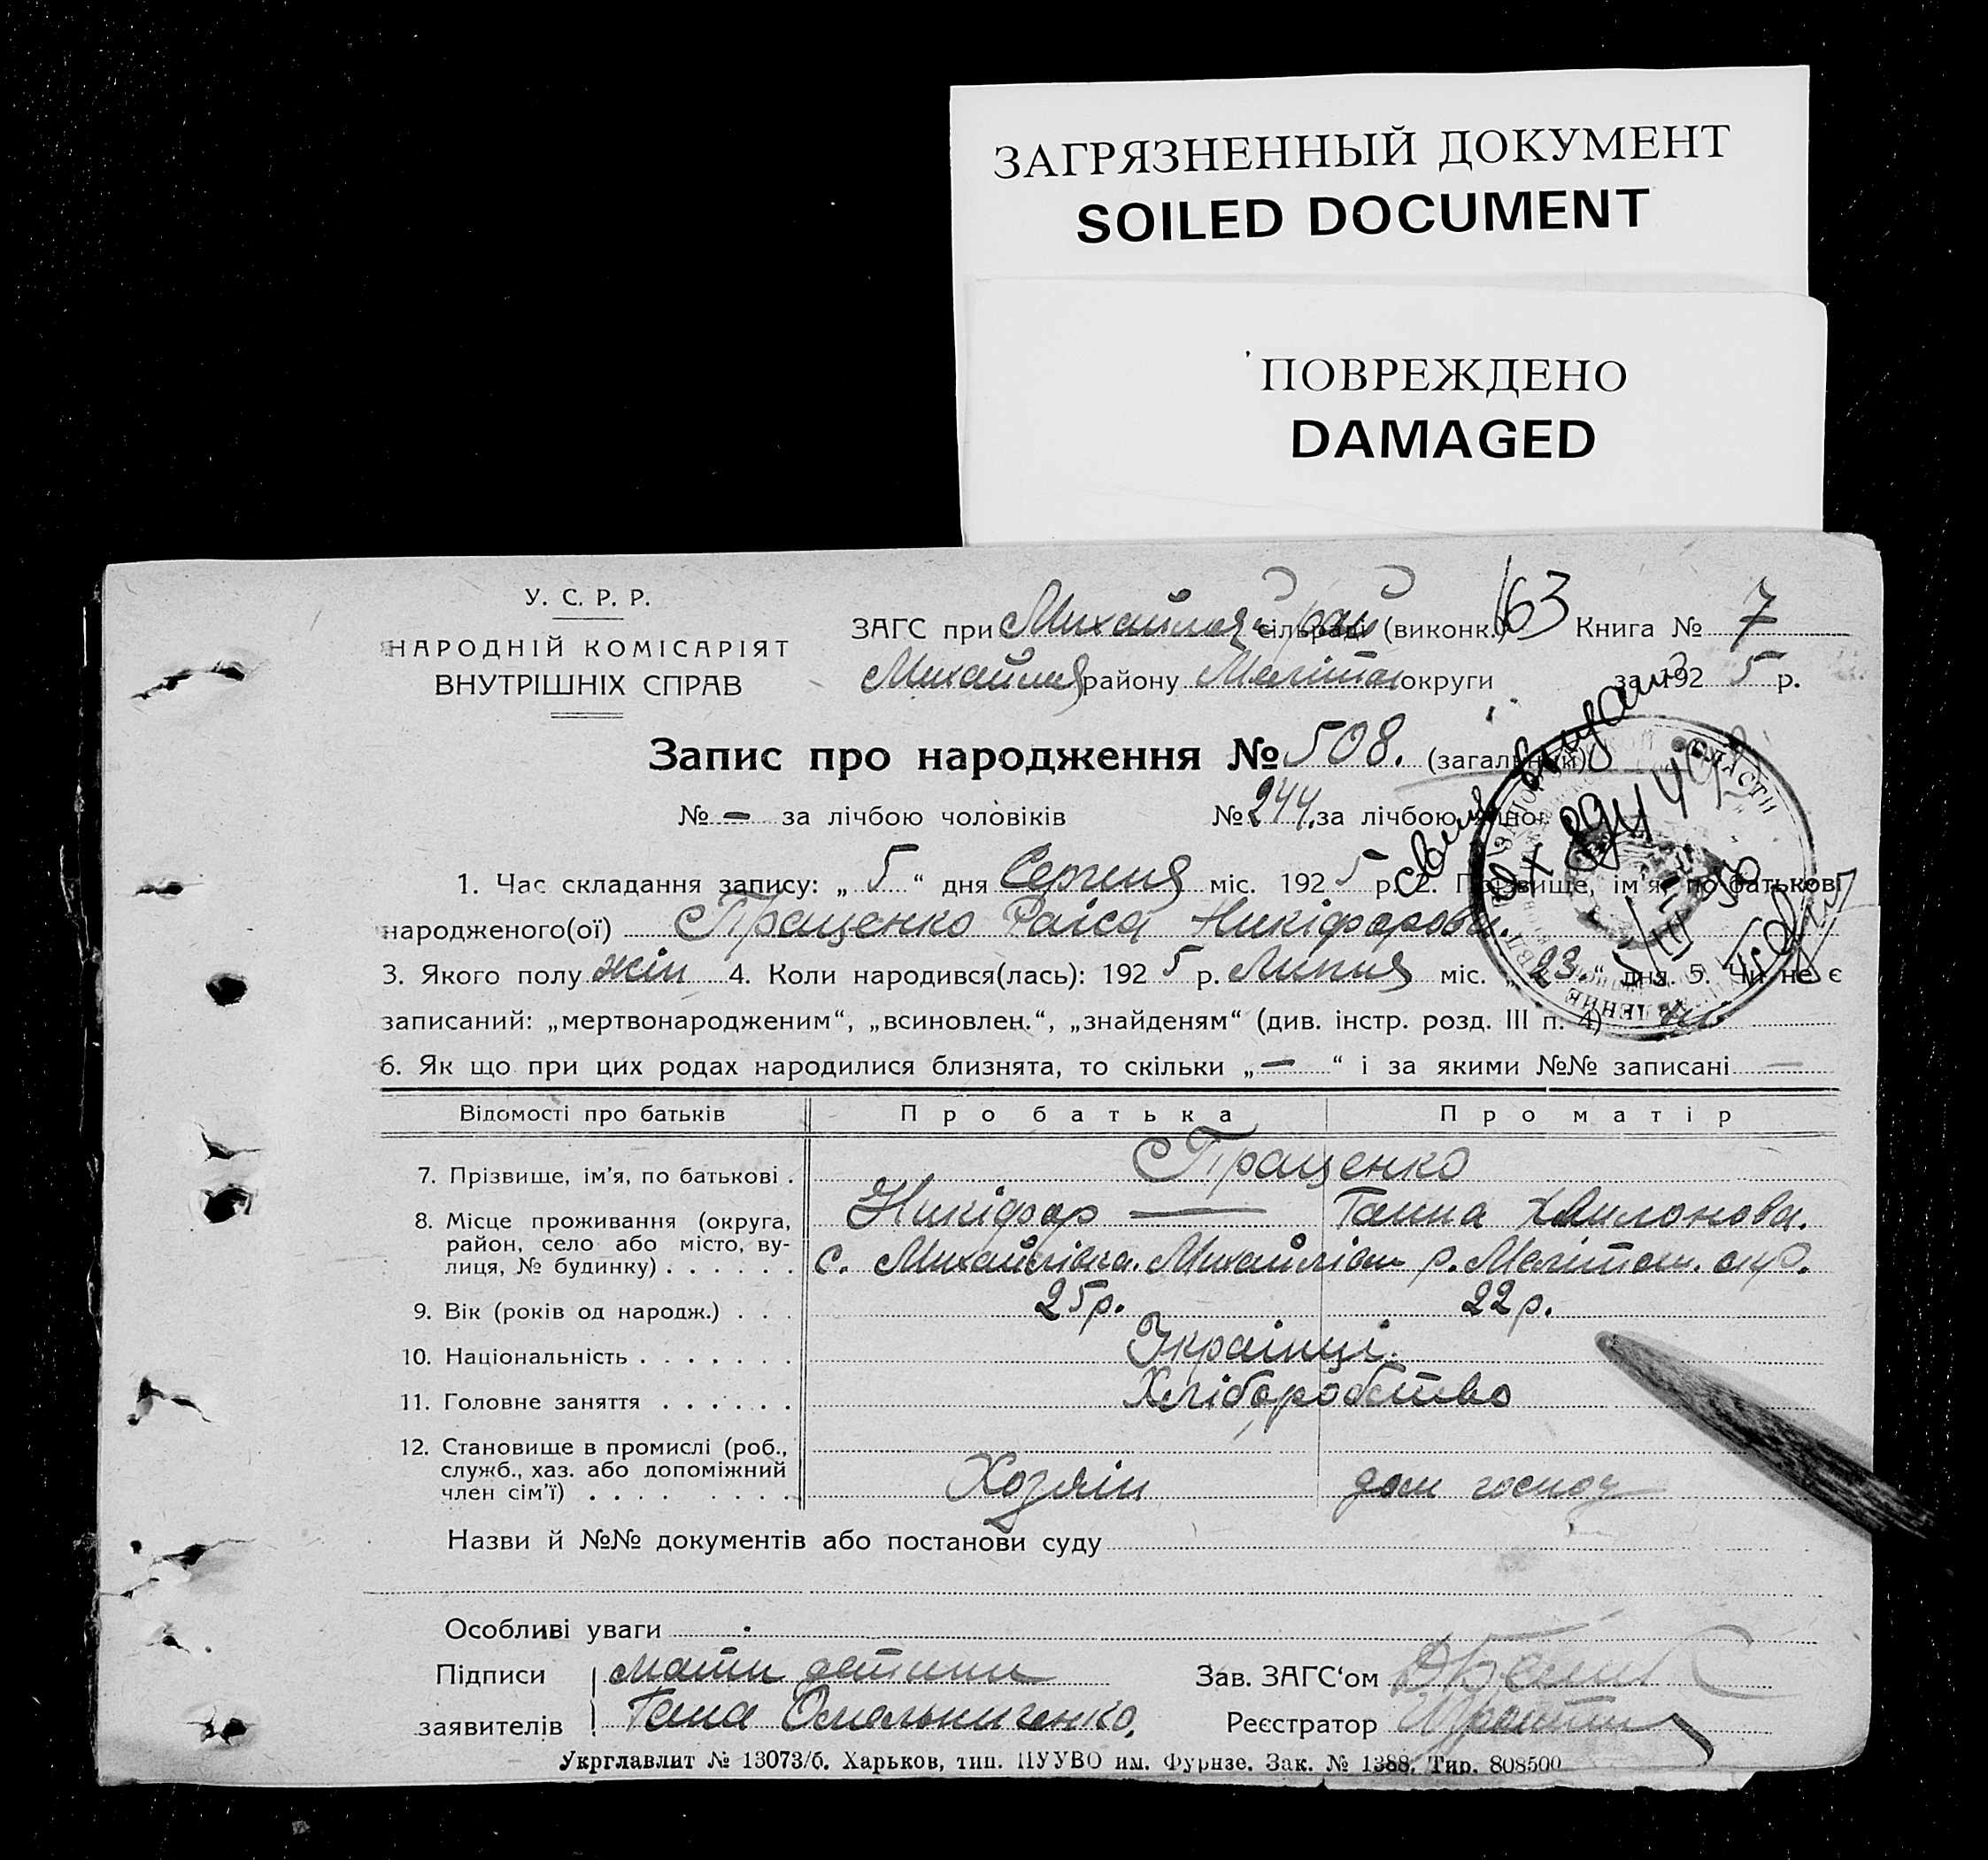 ЗАГРЯЗНЕННЫЙ ДОКУМЕНТ
SOILED DOCUMENT
ПОВРЕЖДЕНО
DAMAGED
У. С. Р. Р.
НАРОДНІЙ КОМІСАРІЯТ
ВНУТРІШНІХ СПРАВ
ЗАГС при Михайлов сільраді (виконк.) 163 Книга № 7
Михайлів району Меліто округи за 192 5 р.
Запис про народження № 508. (загальний)
№ — за лічбою чоловіків № 244. за лічбою жінок
1. Час складання запису: „ 5 “ дня Серпня міс. 192 5 р. 2. Прізвище, ім'я, по батькові
народженого(ої) Пращенко Раїса Никіфорова.
3. Якого полу жін 4. Коли народився(лась): 192 5 р. Липня міс. „ 23. “ дня. 5. Чи не є
записаний: „мертвонародженим“, „всиновлен.“, „знайденям“ (див. інстр. розд. III п. 4)
6. Як що при цих родах народилися близнята, то скільки „ — “ і за якими №№ записані —
Відомості про батьків Про батька Про матір
7. Прізвище, ім'я, по батькові . Пращенко
Никіфор — Ганна
8. Місце проживання (округа,
район, село або місто, ву-
лиця, № будинку) . . . . . . с. Михайлівка. Михайлівськ р. Мелітоп. окр.
9. Вік (років од народж.) . . . 25 р. 22 р.
10. Національність . . . . . . . Українці.
11. Головне заняття . . . . . . Хліборобство
12. Становище в промислі (роб.,
служб., хаз. або допоміжний
член сім'ї) . . . . . . . . . Хозяїн дом господ
Назви й №№ документів або постанови суду
Особливі уваги
Підписи мати дитини Зав. ЗАГС‘ом
заявителів Ганна Омельниченко. Реєстратор
Укрглавлит № 13073/б. Харьков, тип. ПУУВО им. Фрунзе. Зак. № 1388. Тир. 808500